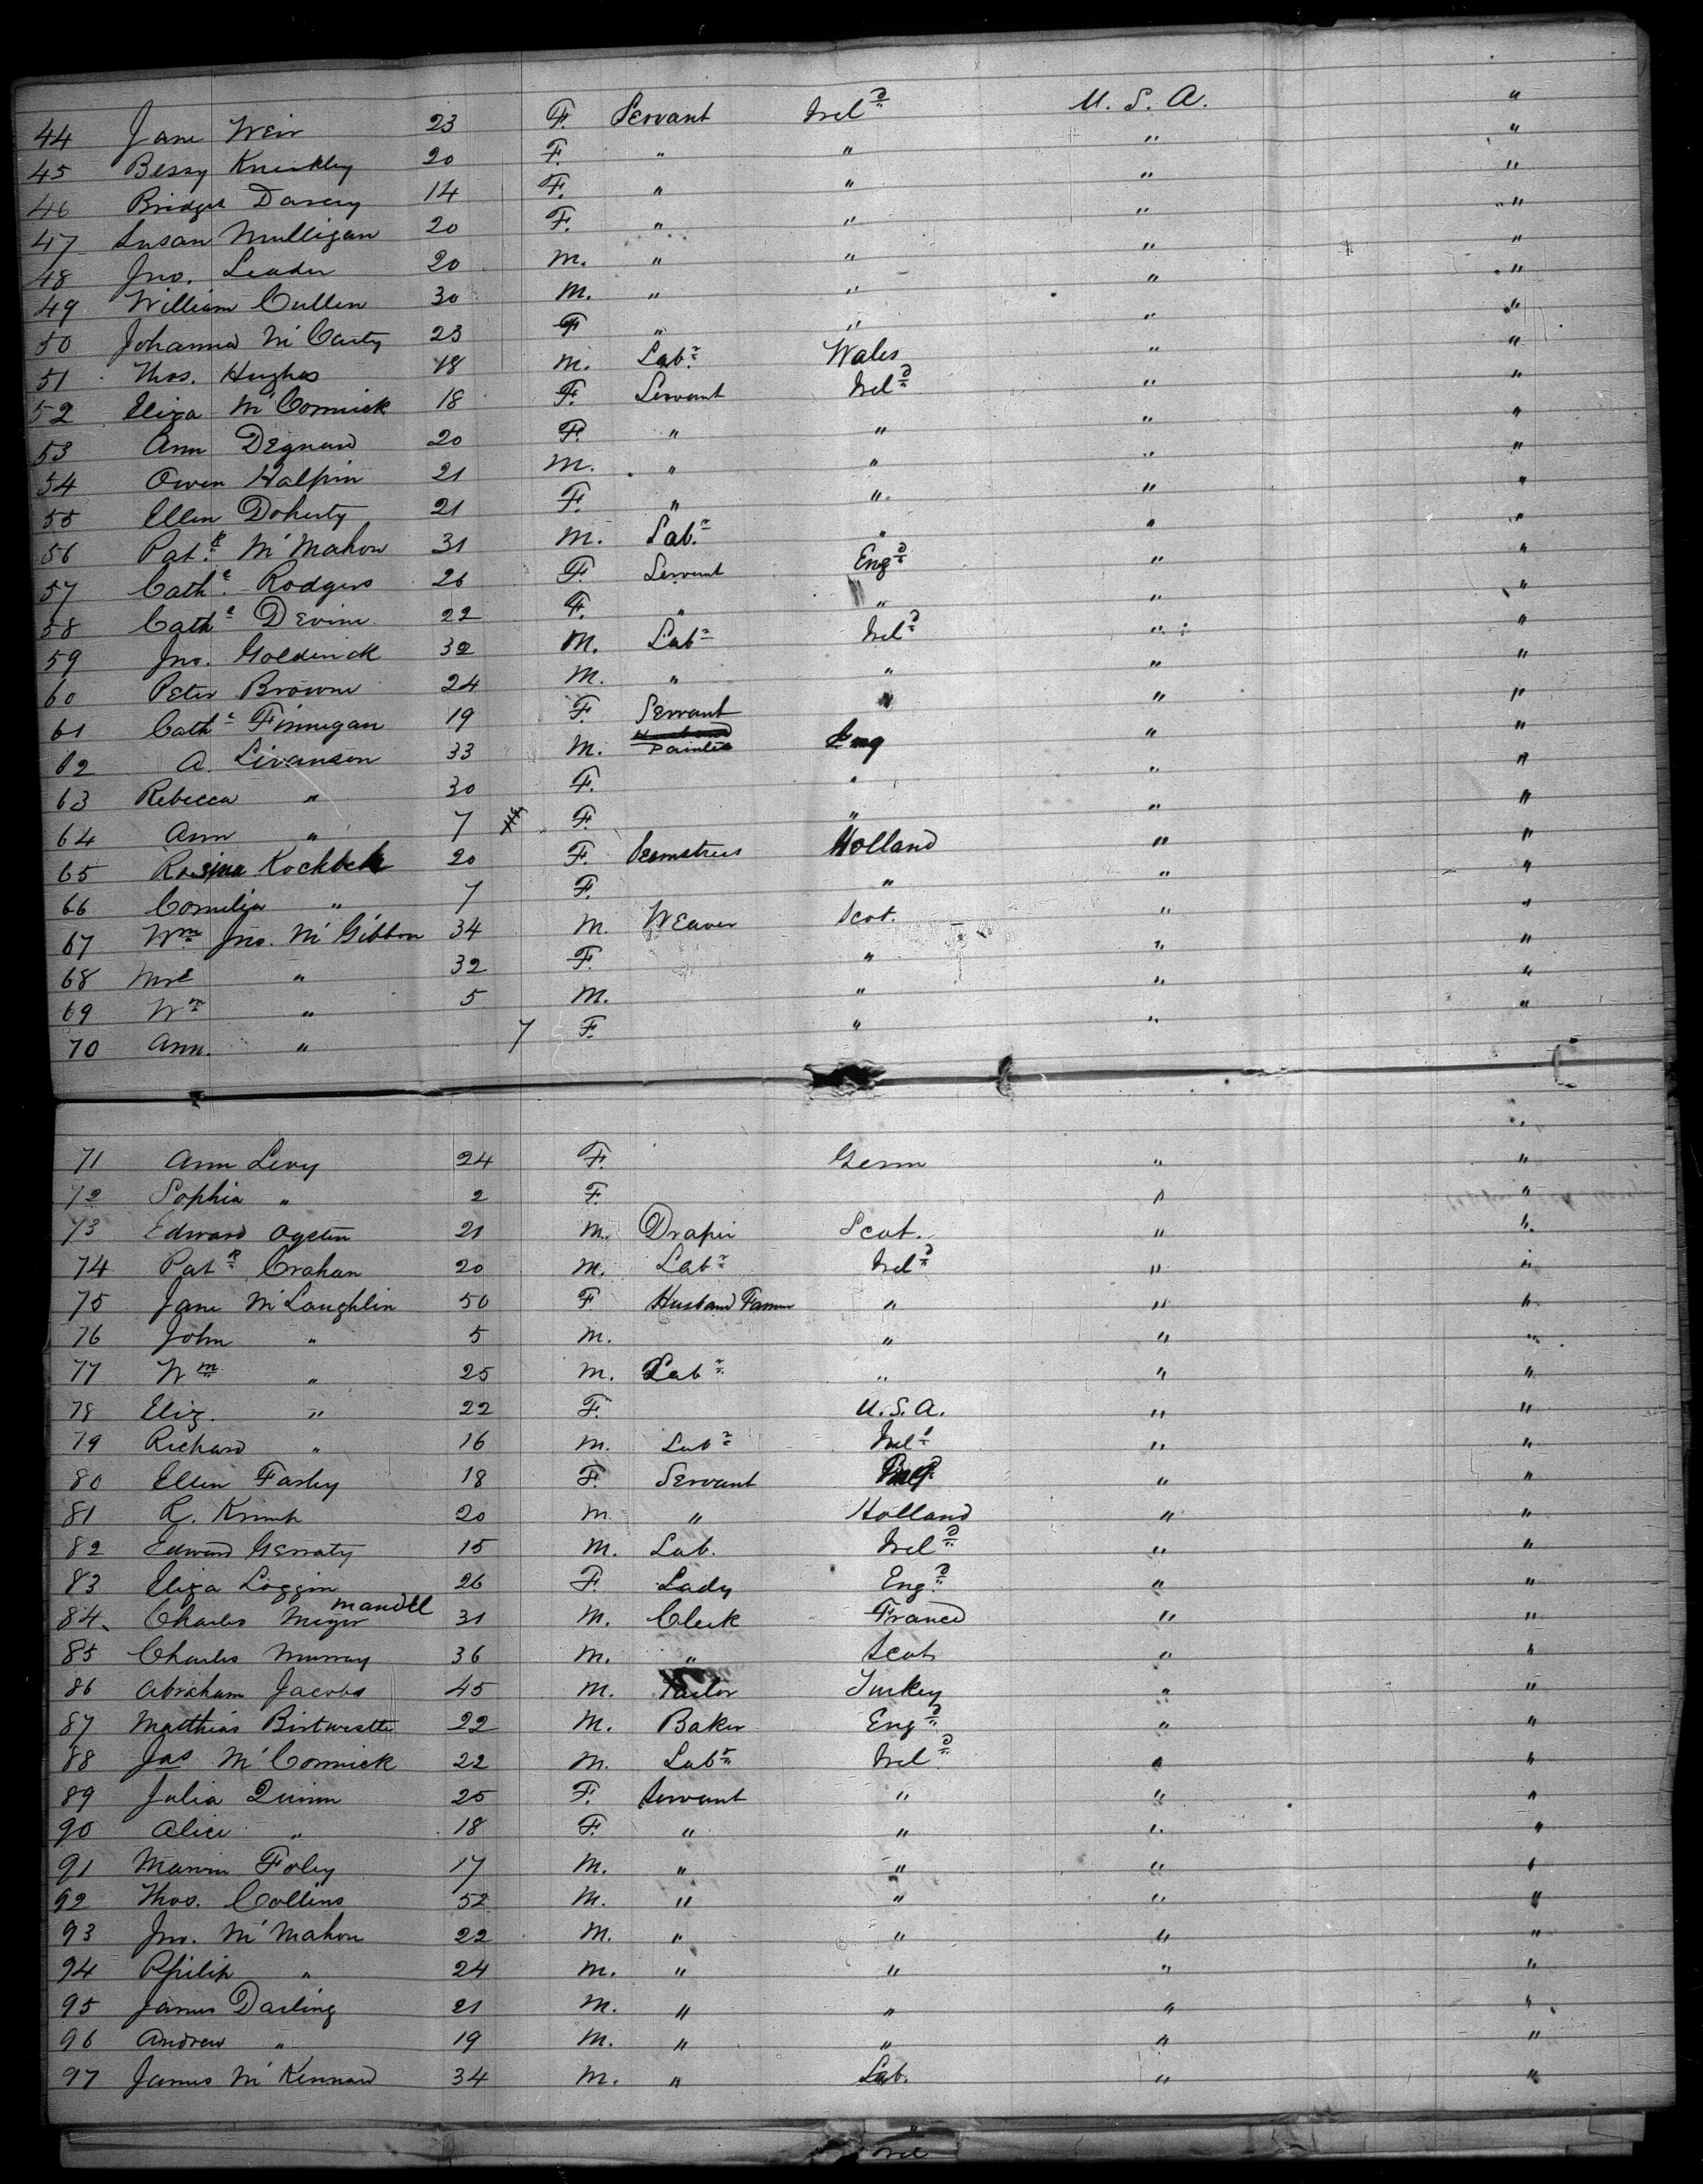 44 Jane Weir 23 F. Servant Irel.d U. S. A. "
45 Bessy Kneikley 20 F. " " " "
46 Bridget Davery 14 F. " " " "
47 Susan Mulligan 20 F. " " " "
48 Jno. Leader 20 M. " " " "
49 William Cullen 30 M. " " " "
50 Johanna McCarty 23 F " " " "
51 Thos. Hughes 18 M. Lab.r Wales " "
52 Eliza McCormick 18 F. Servant Irel.d " "
53 Ann Degnan 20 F. " " " "
54 Owen Halpin 21 M. " " " "
55 Ellen Doherty 21 F. " " " "
56 Pat.k McMahon 31 M. Lab.r " " "
57 Cath.e Rodgers 26 F. Servant Eng.d " "
58 Cath.e Devine 22 F. " " " "
59 Jno. Golderick 32 M. Lab.r Irel.d " "
60 Peter Browne 24 M. " " " "
61 Cath.e Finnegan 19 F. Servant " " "
62 A. Livanson 33 M. Painter Eng " "
63 Rebecca " 30 F. " " "
64 Ann " 7 F. " " "
65 Rosina Kochbek 20 F. Seamstress Holland " "
66 Cornelia " 7 F. " " "
67 Wm Jno. McGibbon 34 M. Weaver Scot. " "
68 Mrs " 32 F. " " "
69 Wm " 5 M. " " "
70 Ann. " 7 F. " " "
71 Ann Levy 24 F. Germ " "
72 Sophia " 2 F. " "
73 Edward Ogsten 21 M. Draper Scot. " "
74 Pat.k Crahan 20 M. Lab.r Irel.d " "
75 Jane McLaughlin 50 F Husband Farmer " " "
76 John " 5 M. " " "
77 Wm " 25 M. Lab.r " " "
78 Eliz. " 22 F. U.S.A. " "
79 Richard " 16 M. Lab.r Irel.d " "
80 Ellen Farley 18 F. Servant " "
81 R. 20 M. " Holland " "
82 Edward Gerraty 15 M. Lab. Irel.d " "
83 Eliza Loggin 26 F. Lady Eng.d " "
84. Charles Meyer Mandel 31 M. Clerk France " "
85 Charles Murray 36 M. " Scot. " "
86 Abraham Jacobs 45 M. Tailor Turkey " "
87 Matthias Birtwestle 22 M. Baker Eng.d " "
88 Jas McCormick 22 M. Lab.r Irel.d " "
89 Julia Quinn 25 F. Servant " " "
90 Alice " 18 F. " " " "
91 Foley 17 M. " " " "
92 Thos. Collins 52 M. " " " "
93 Jno. McMahon 22 M. " " " "
94 Philip " 24 M. " " " "
95 James Darling 21 M. " " " "
96 Andrew " 19 M. " " " "
97 James McKennan 34 M. " Lab. " "
Irel